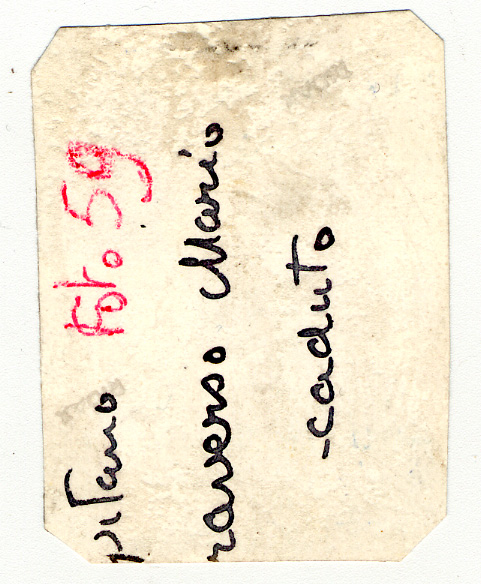 pitano foto 59
raverso Mario
-caduto